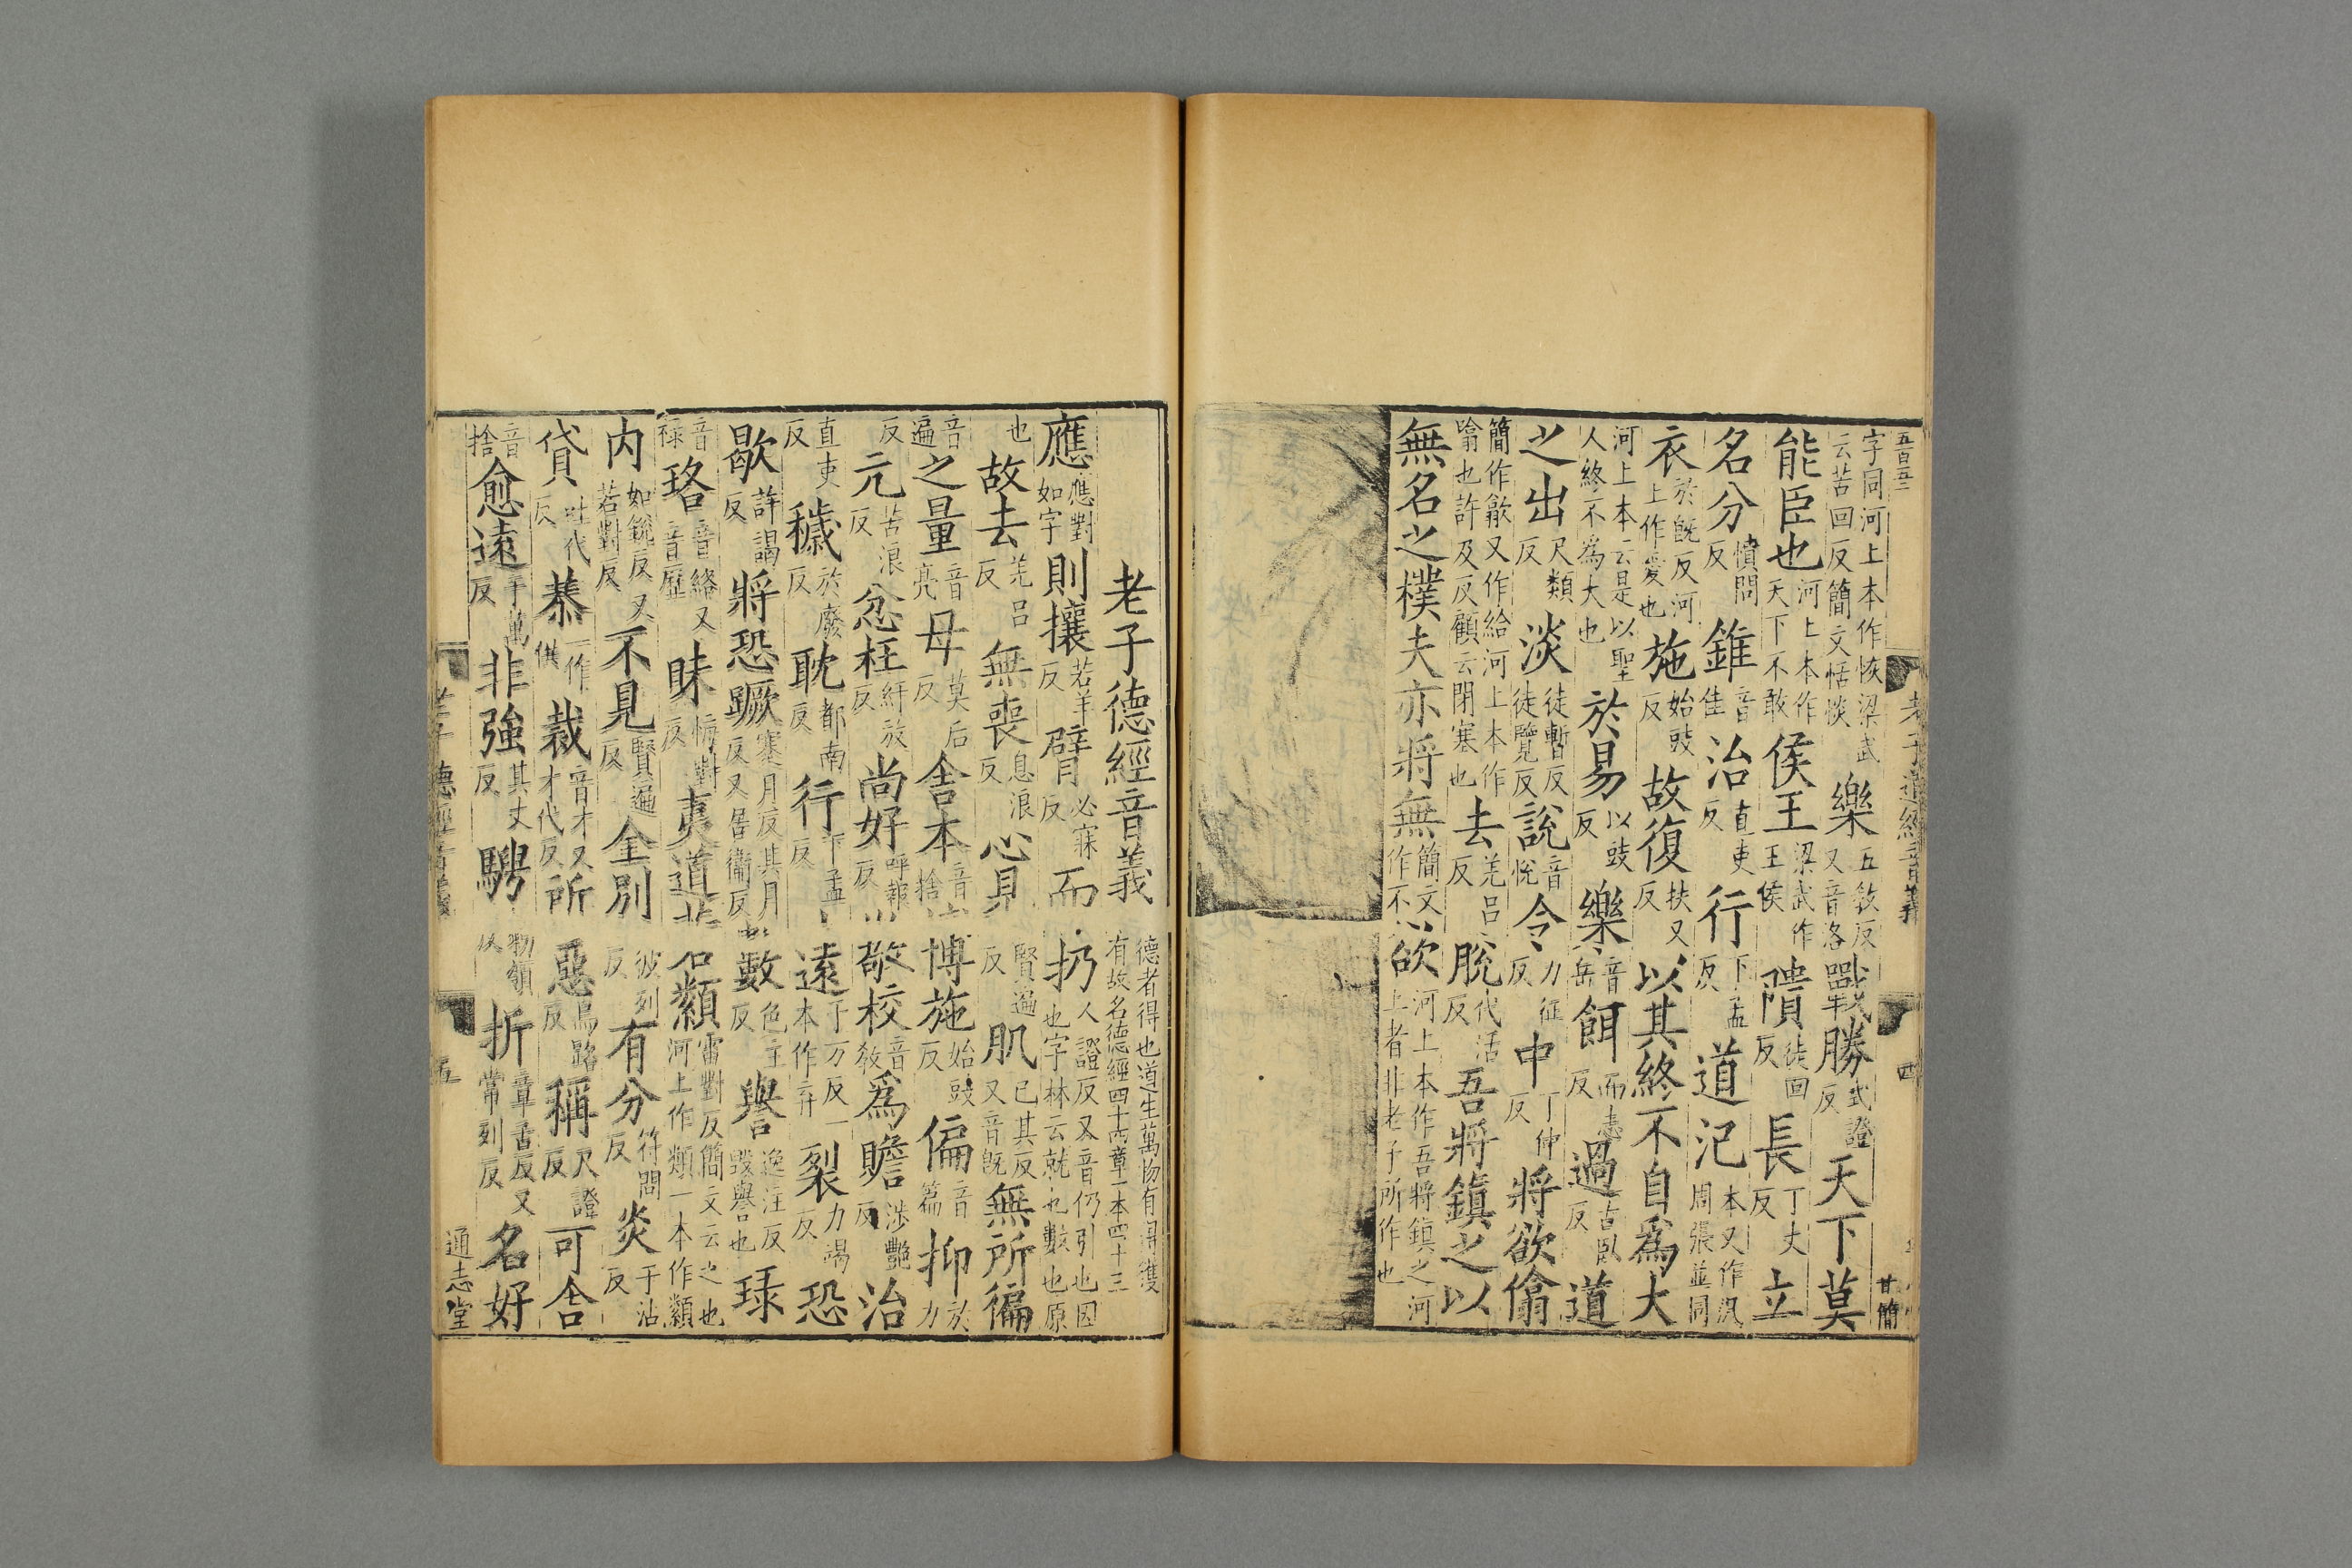 五百五十三
老子道經音義
四
甘簡
字同河上本作恢梁武
云苦回反簡文恬惔
樂
五敎反
又音洛
戰勝
式證
反
天下莫
能臣也
河上本作
天下不敢
侯王
梁武作
王侯
隤
徒回
反
長
丁丈
反
立
名分
憤問
反
錐
音
佳
治
直吏
反
行
下孟
反
道氾
本又作汎
周張並同
衣
於旣反河
上作愛也
施
始豉
反
故復
扶又
反
以其終不自爲大
河上本云是以聖
人終不爲大也
於易
以豉
反
樂
音
岳
餌
而志
反
過
古臥
反
道
之出
尺類
反
淡
徒暫反
徒覽反
說
音
悅
令
力征
反
中
丁仲
反
將欲僞
簡作歙又作給河上本作
噏也許及反顧云閉塞也
去
羌呂
反
脫
代活
反
吾將鎭之以
無名之樸夫亦將無
簡文
作不
欲
河上本作吾將鎭之河
上者非老子所作也
老子德經音義
德者得也道生萬物有得獲
有故名德經四十四章一本四十三
應
應對
如字
則攘
若羊
反
臂
必寐
反
而扔
人證反又音仍引也因
也字林云就也數也原
也
故去
羌呂
反
無喪
息浪
反
心見
賢遍
反
肌
己其反
又音旣
無所徧
音
遍
之量
音
亮
母
莫后
反
舍本
音
捨
博施
始豉
反
偏
音
篇
抑
於力
反
亢
苦浪
反
忿枉
紆放
反
尚好
呼報
反
敬校
音
敎
爲贍
涉豔
反
治
直吏
反
穢
於廢
反
耽
都南
反
行
下孟
反
遠
于万反一
本作弃
裂
力竭
反
恐
歇
許謁
反
將恐蹶
塞月反其月
反又居衞反
數
色主
反
譽
逸注反
毀譽也
琭
音
祿
珞
音絡又
音歷
昧
悔對
反
夷道
若纇
雷對反簡文云之也
河上作類一本作纇
内
如銳反又
若對反
不見
賢遍
反
全別
彼列
反
有分
符問
反
炎
于沾
反
貸
吐代
反
恭
一作
供
裁
音才又
才代反
所惡
烏路
反
稱
尺證
反
可舍
音
捨
愈遠
于萬
反
非強
其丈
反
騁
勑領
反
折
章舌反又
常列反
名好
德經音義
五
通志堂